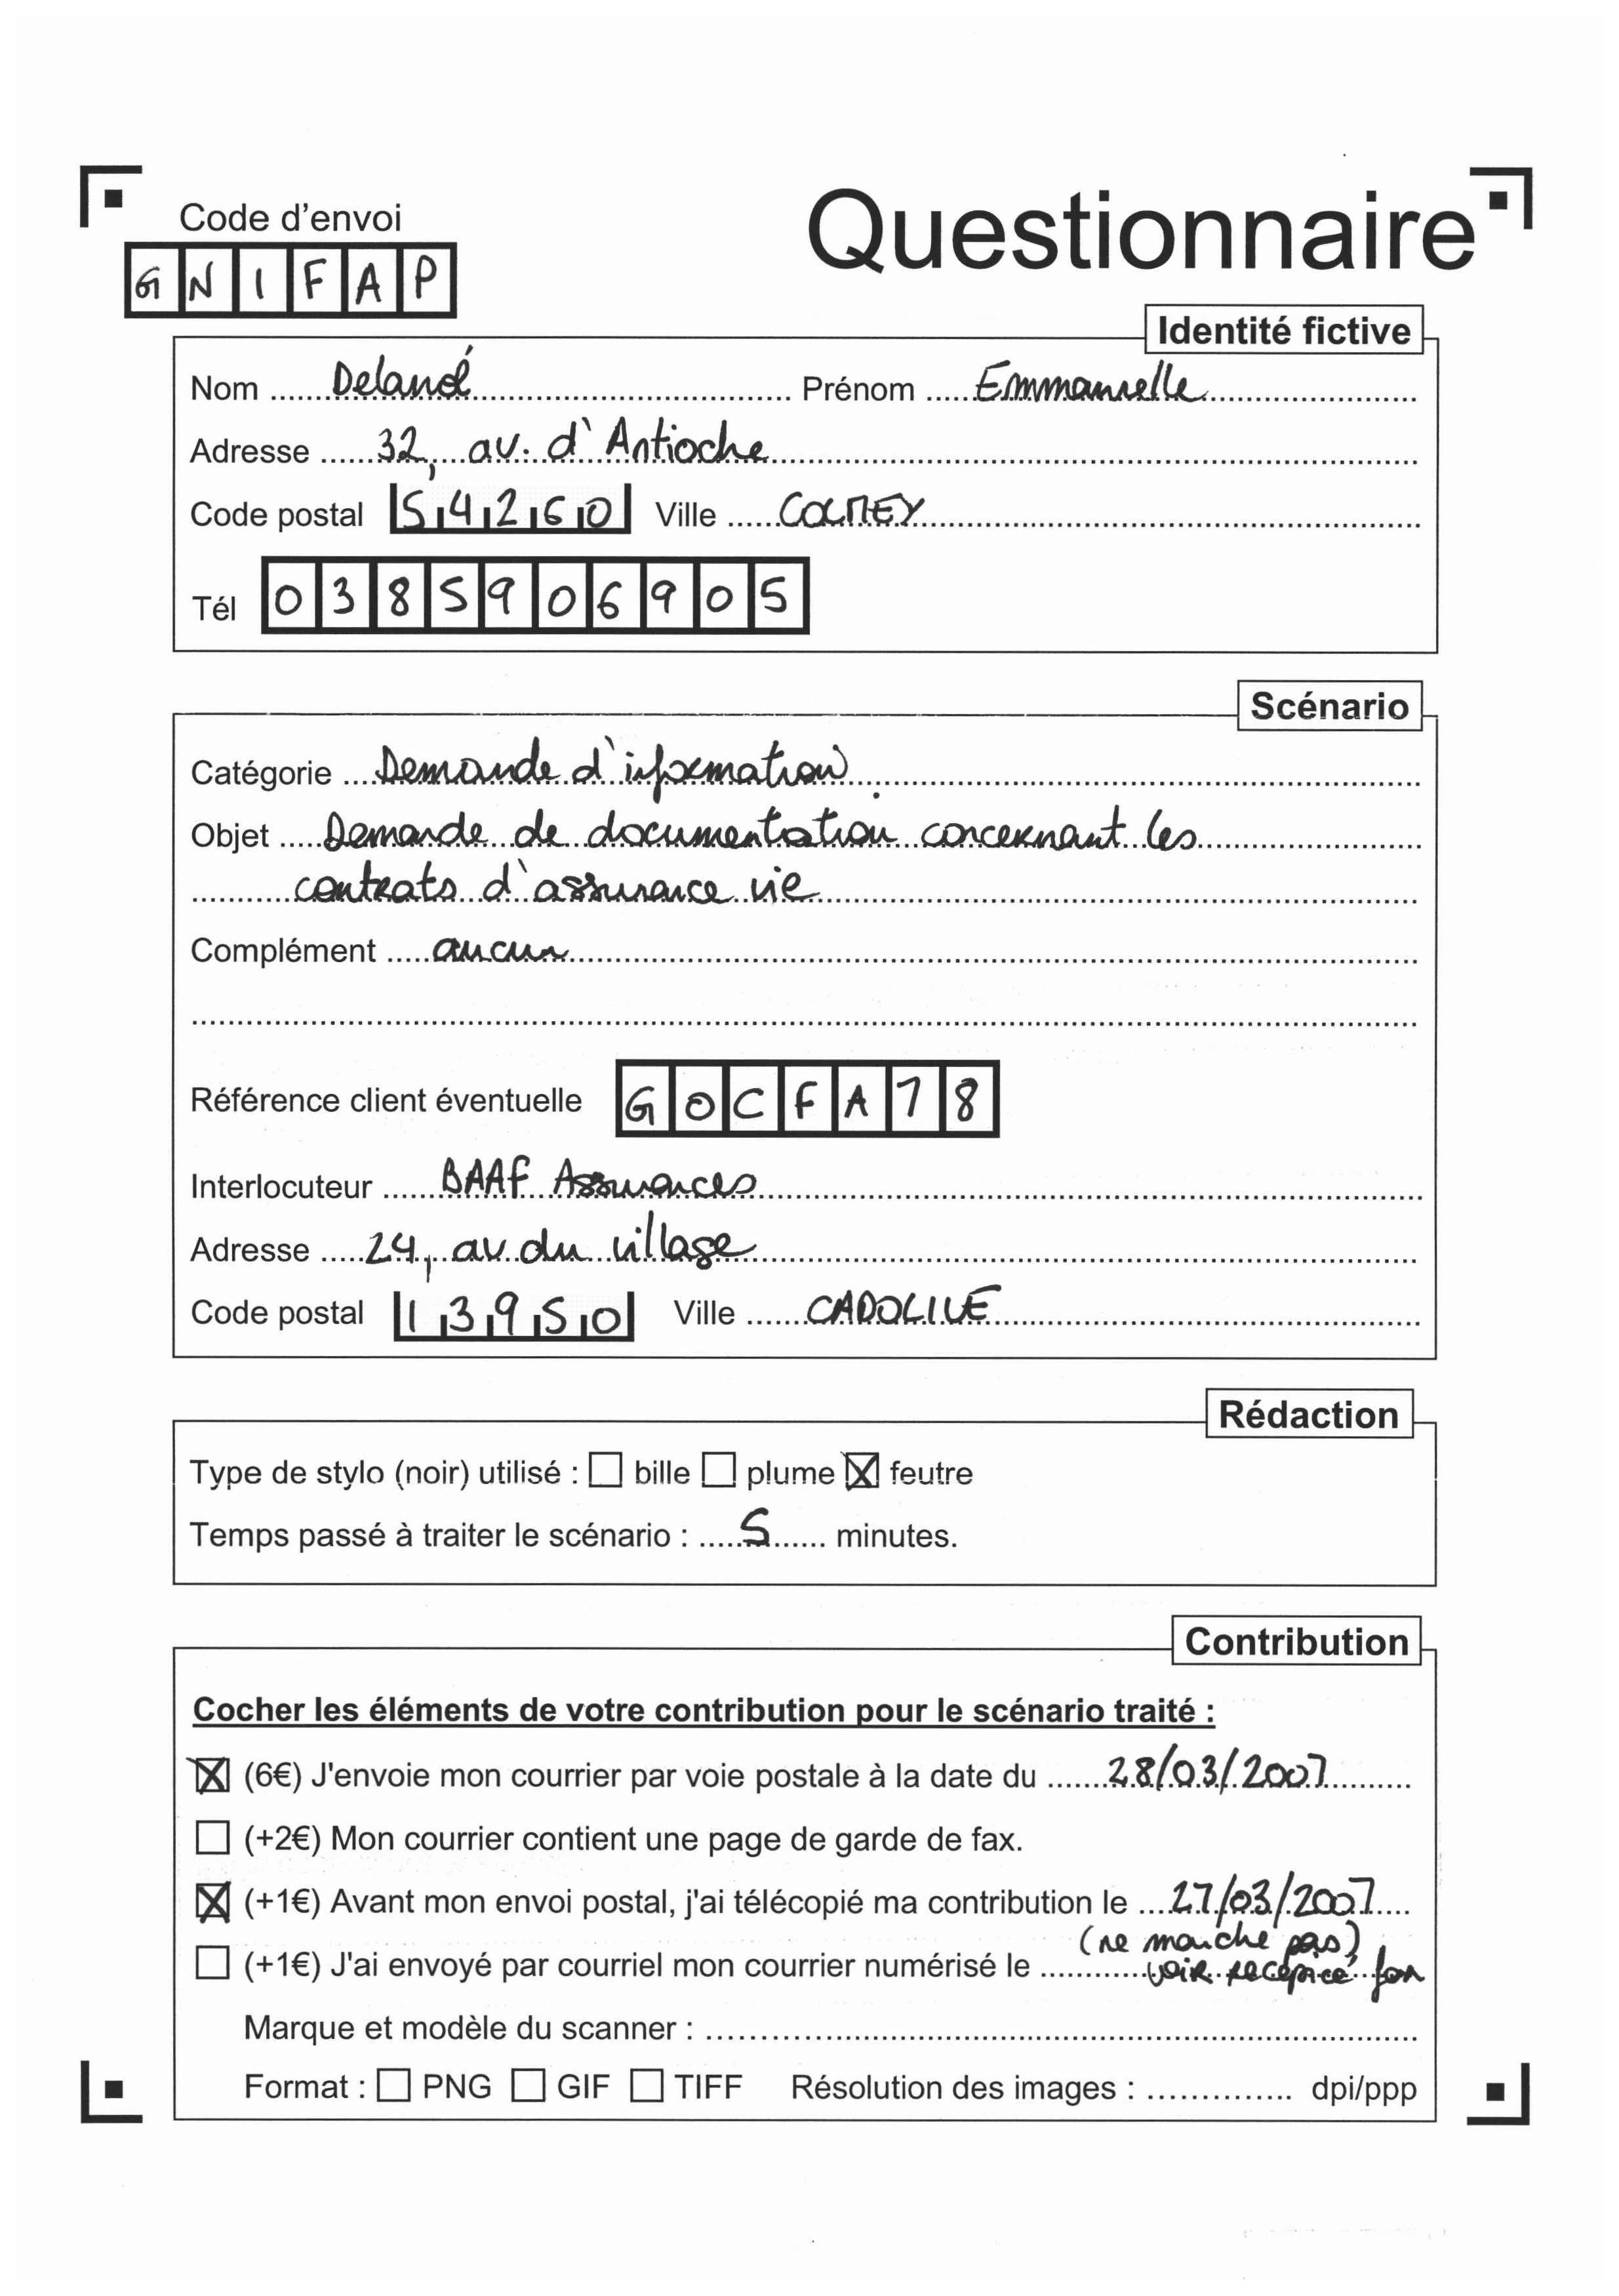 Code d'envoi
Questionnaire
GNIFAP
Identité fictive
Nom Delanoé Prénom Emmanuelle
Adresse 32, av. d'Antioche
Code postal 54260 Ville COLMEY
Tél 0385906905
Scénario
Catégorie Demande d'information.
Objet Demande de documentation concernant les
contrats d'assurance vie
Complément aucun
Référence client éventuelle GOCFA78
Interlocuteur BAAF Assurances
Adresse 24, av du village
Code postal 13950 Ville CADOLIVE
Rédaction
Type de stylo (noir) utilisé : bille plume feutre
Temps passé à traiter le scénario : 5 minutes.
Contribution
Cocher les éléments de votre contribution pour le scénario traité :
(6€) J'envoie mon courrier par voie postale à la date du 28/03/2007
(+2€) Mon courrier contient une page de garde de fax.
(+1€) Avant mon envoi postal, j'ai télécopié ma contribution le 27/03/2007
(ne marche pas)
(+1€) J'ai envoyé par courriel mon courrier numérisé le voir recépicé fax
Marque et modèle du scanner :
Format : PNG GIF TIFF Résolution des images : dpi/ppp